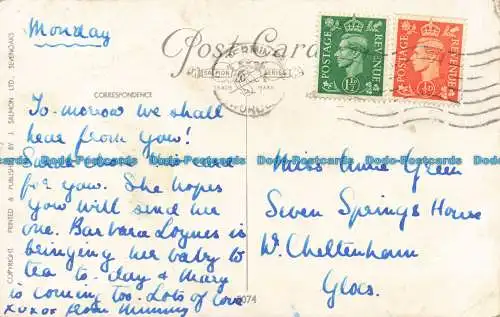 Monday
Post Card
SALMON SERIES
TRADE MARK
POSTAGE REVENUE
1½D
POSTAGE REVENUE
½D
CORRESPONDENCE
To-morrow we shall
hear from you!
this card
for you. She hopes
you will send her
one. Barbara Loynes is
bringing her baby to
tea to-day & Mary
is coming too. Lots of love
xxxox from Mummy
Miss Anne Green
Seven Springs House
Nr. Cheltenham
Glos.
COPYRIGHT PRINTED & PUBLISHED BY J. SALMON LTD. SEVENOAKS
5074
Dodo-Postcards